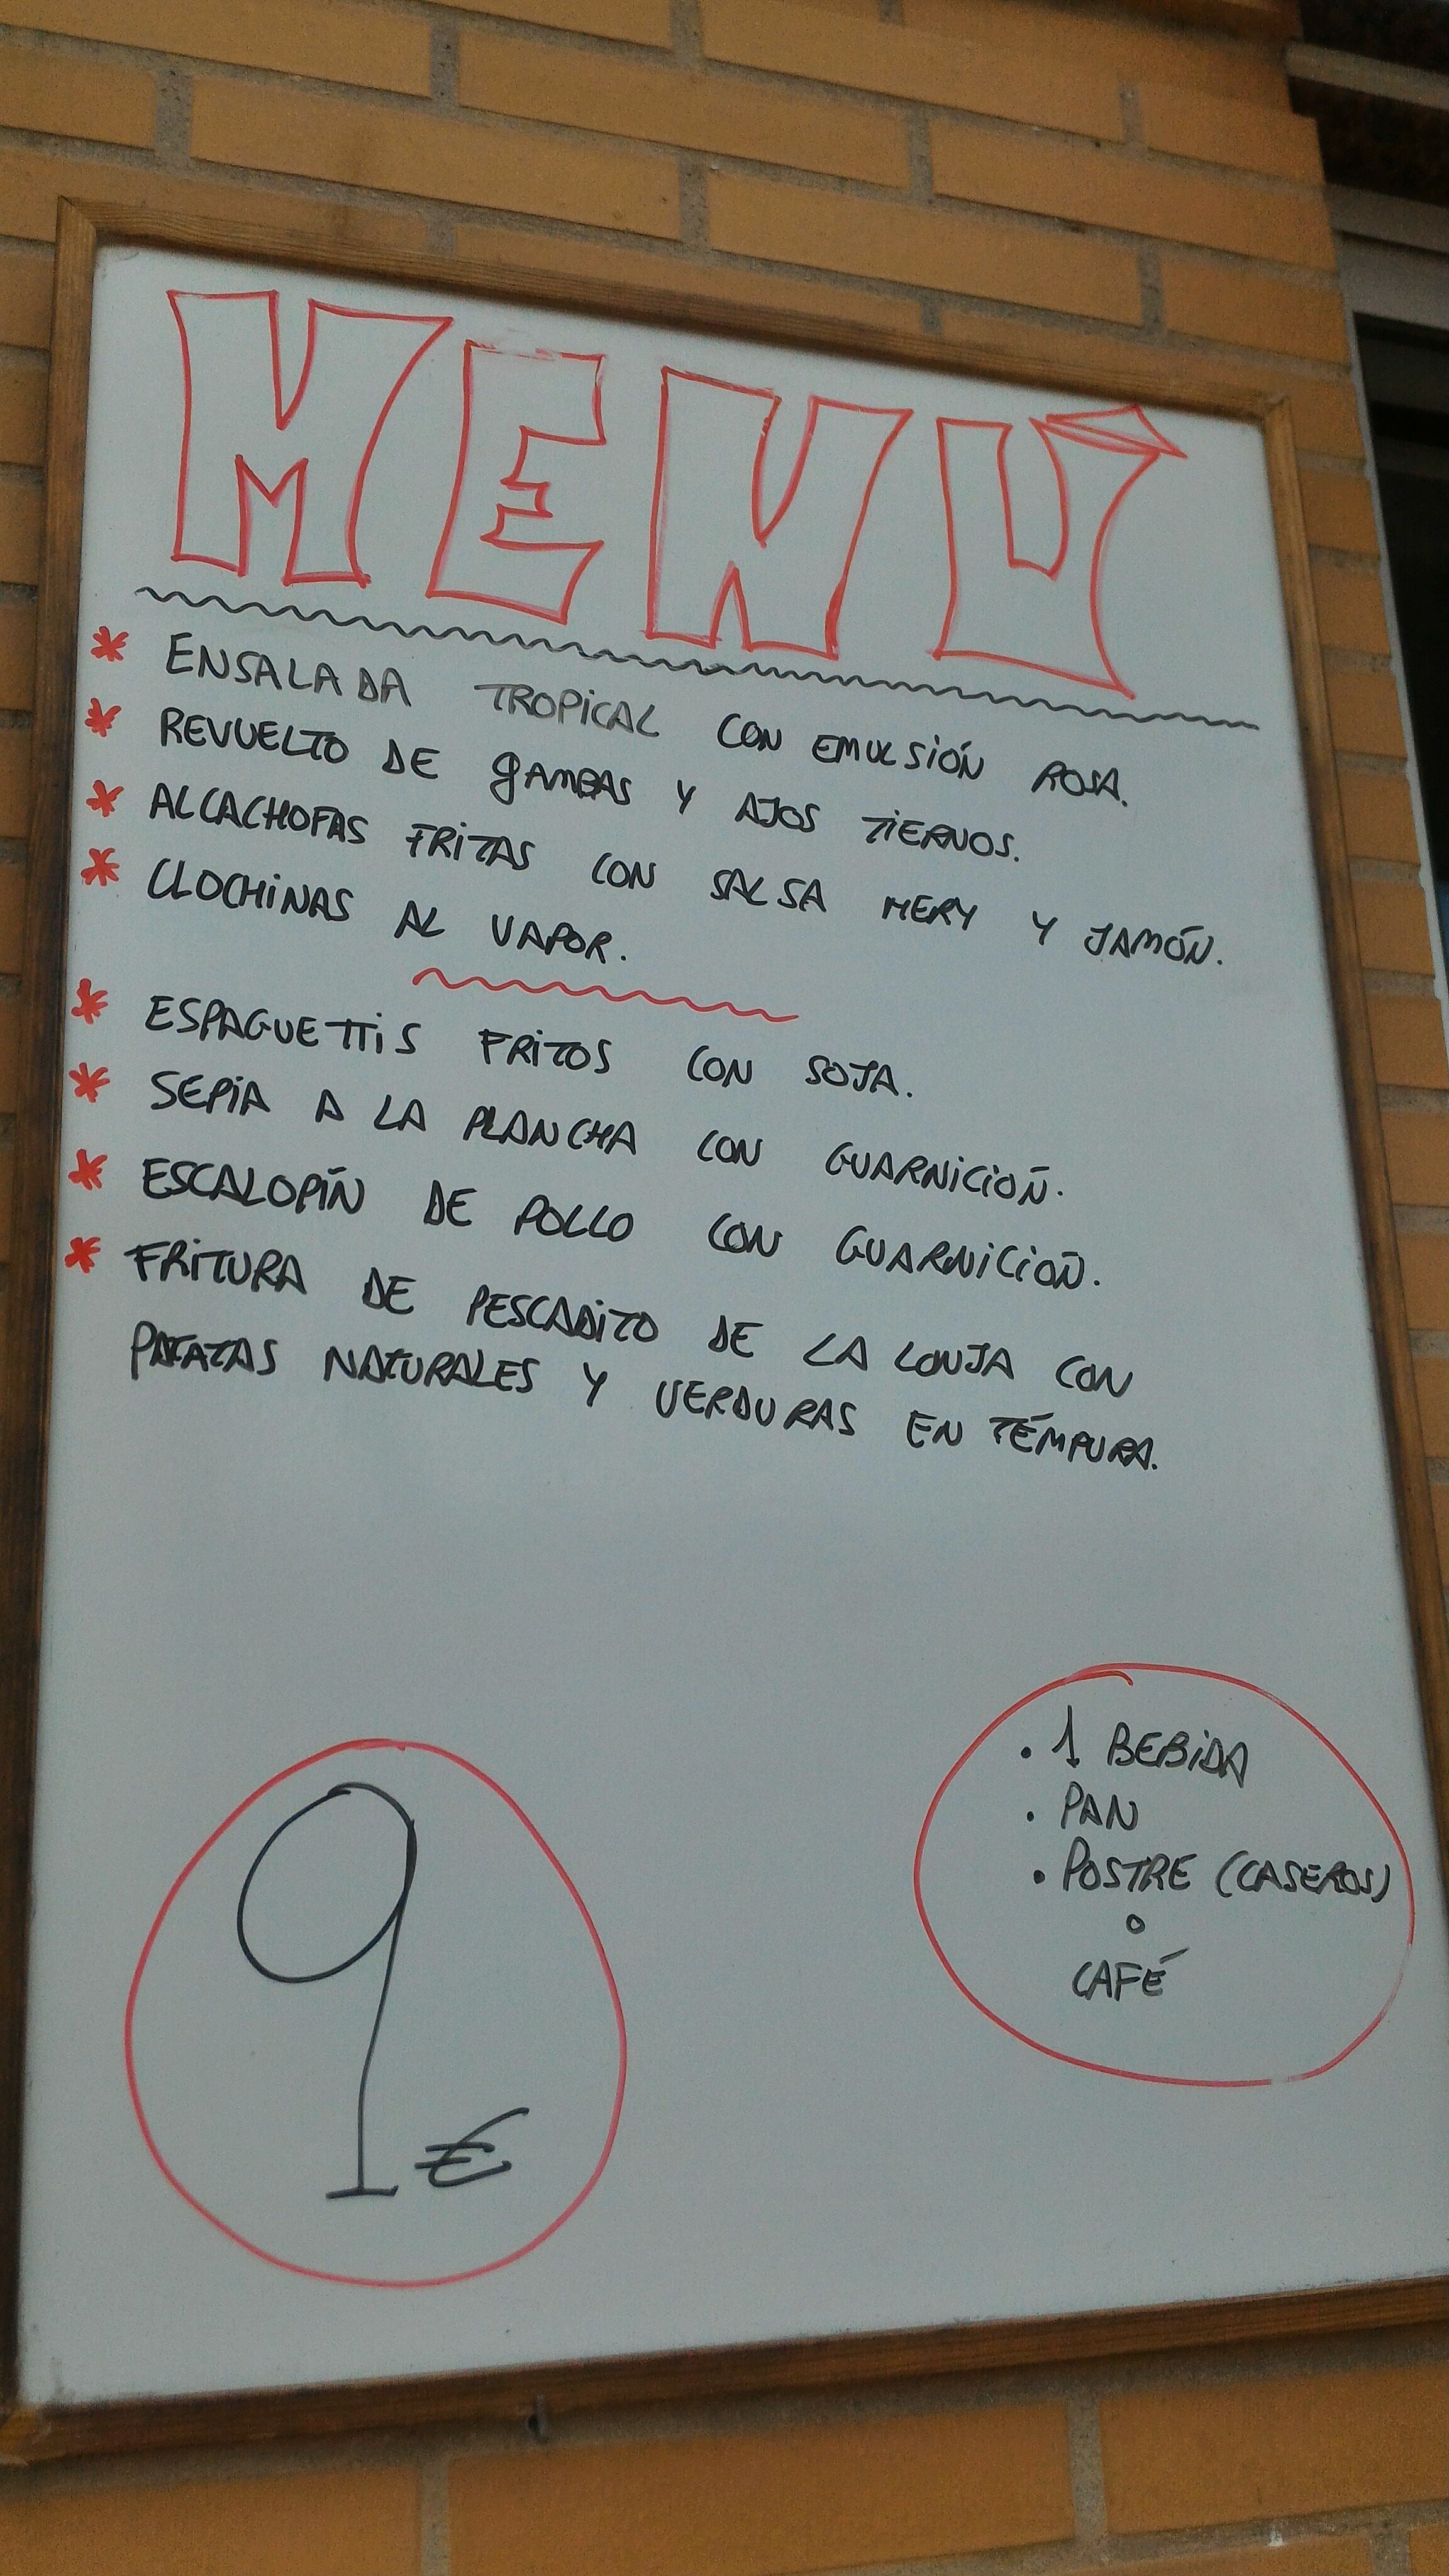 MENÚ
* ENSALADA TROPICAL CON EMULSIÓN ROSA.
* REVUELTO DE gAMBAS Y AJOS TIERNOS.
* ALCACHOFAS FRITAS CON SALSA MERY Y JAMÓN.
* CLOCHINAS AL VAPOR.
* ESPAGUETTIS FRITOS CON SOJA.
* SEPIA A LA PLANCHA CON GUARNICIOÑ.
* ESCALOPIÑ DE POLLO CON GUARNICIOÑ.
* FRITURA DE PESCADITO DE LA LONJA CON
PATATAS NATURALES Y VERDURAS EN TÉMPURA.
. 1 BEBIDA
. PAN
. POSTRE (CASEROS)
o
CAFÉ
9 €